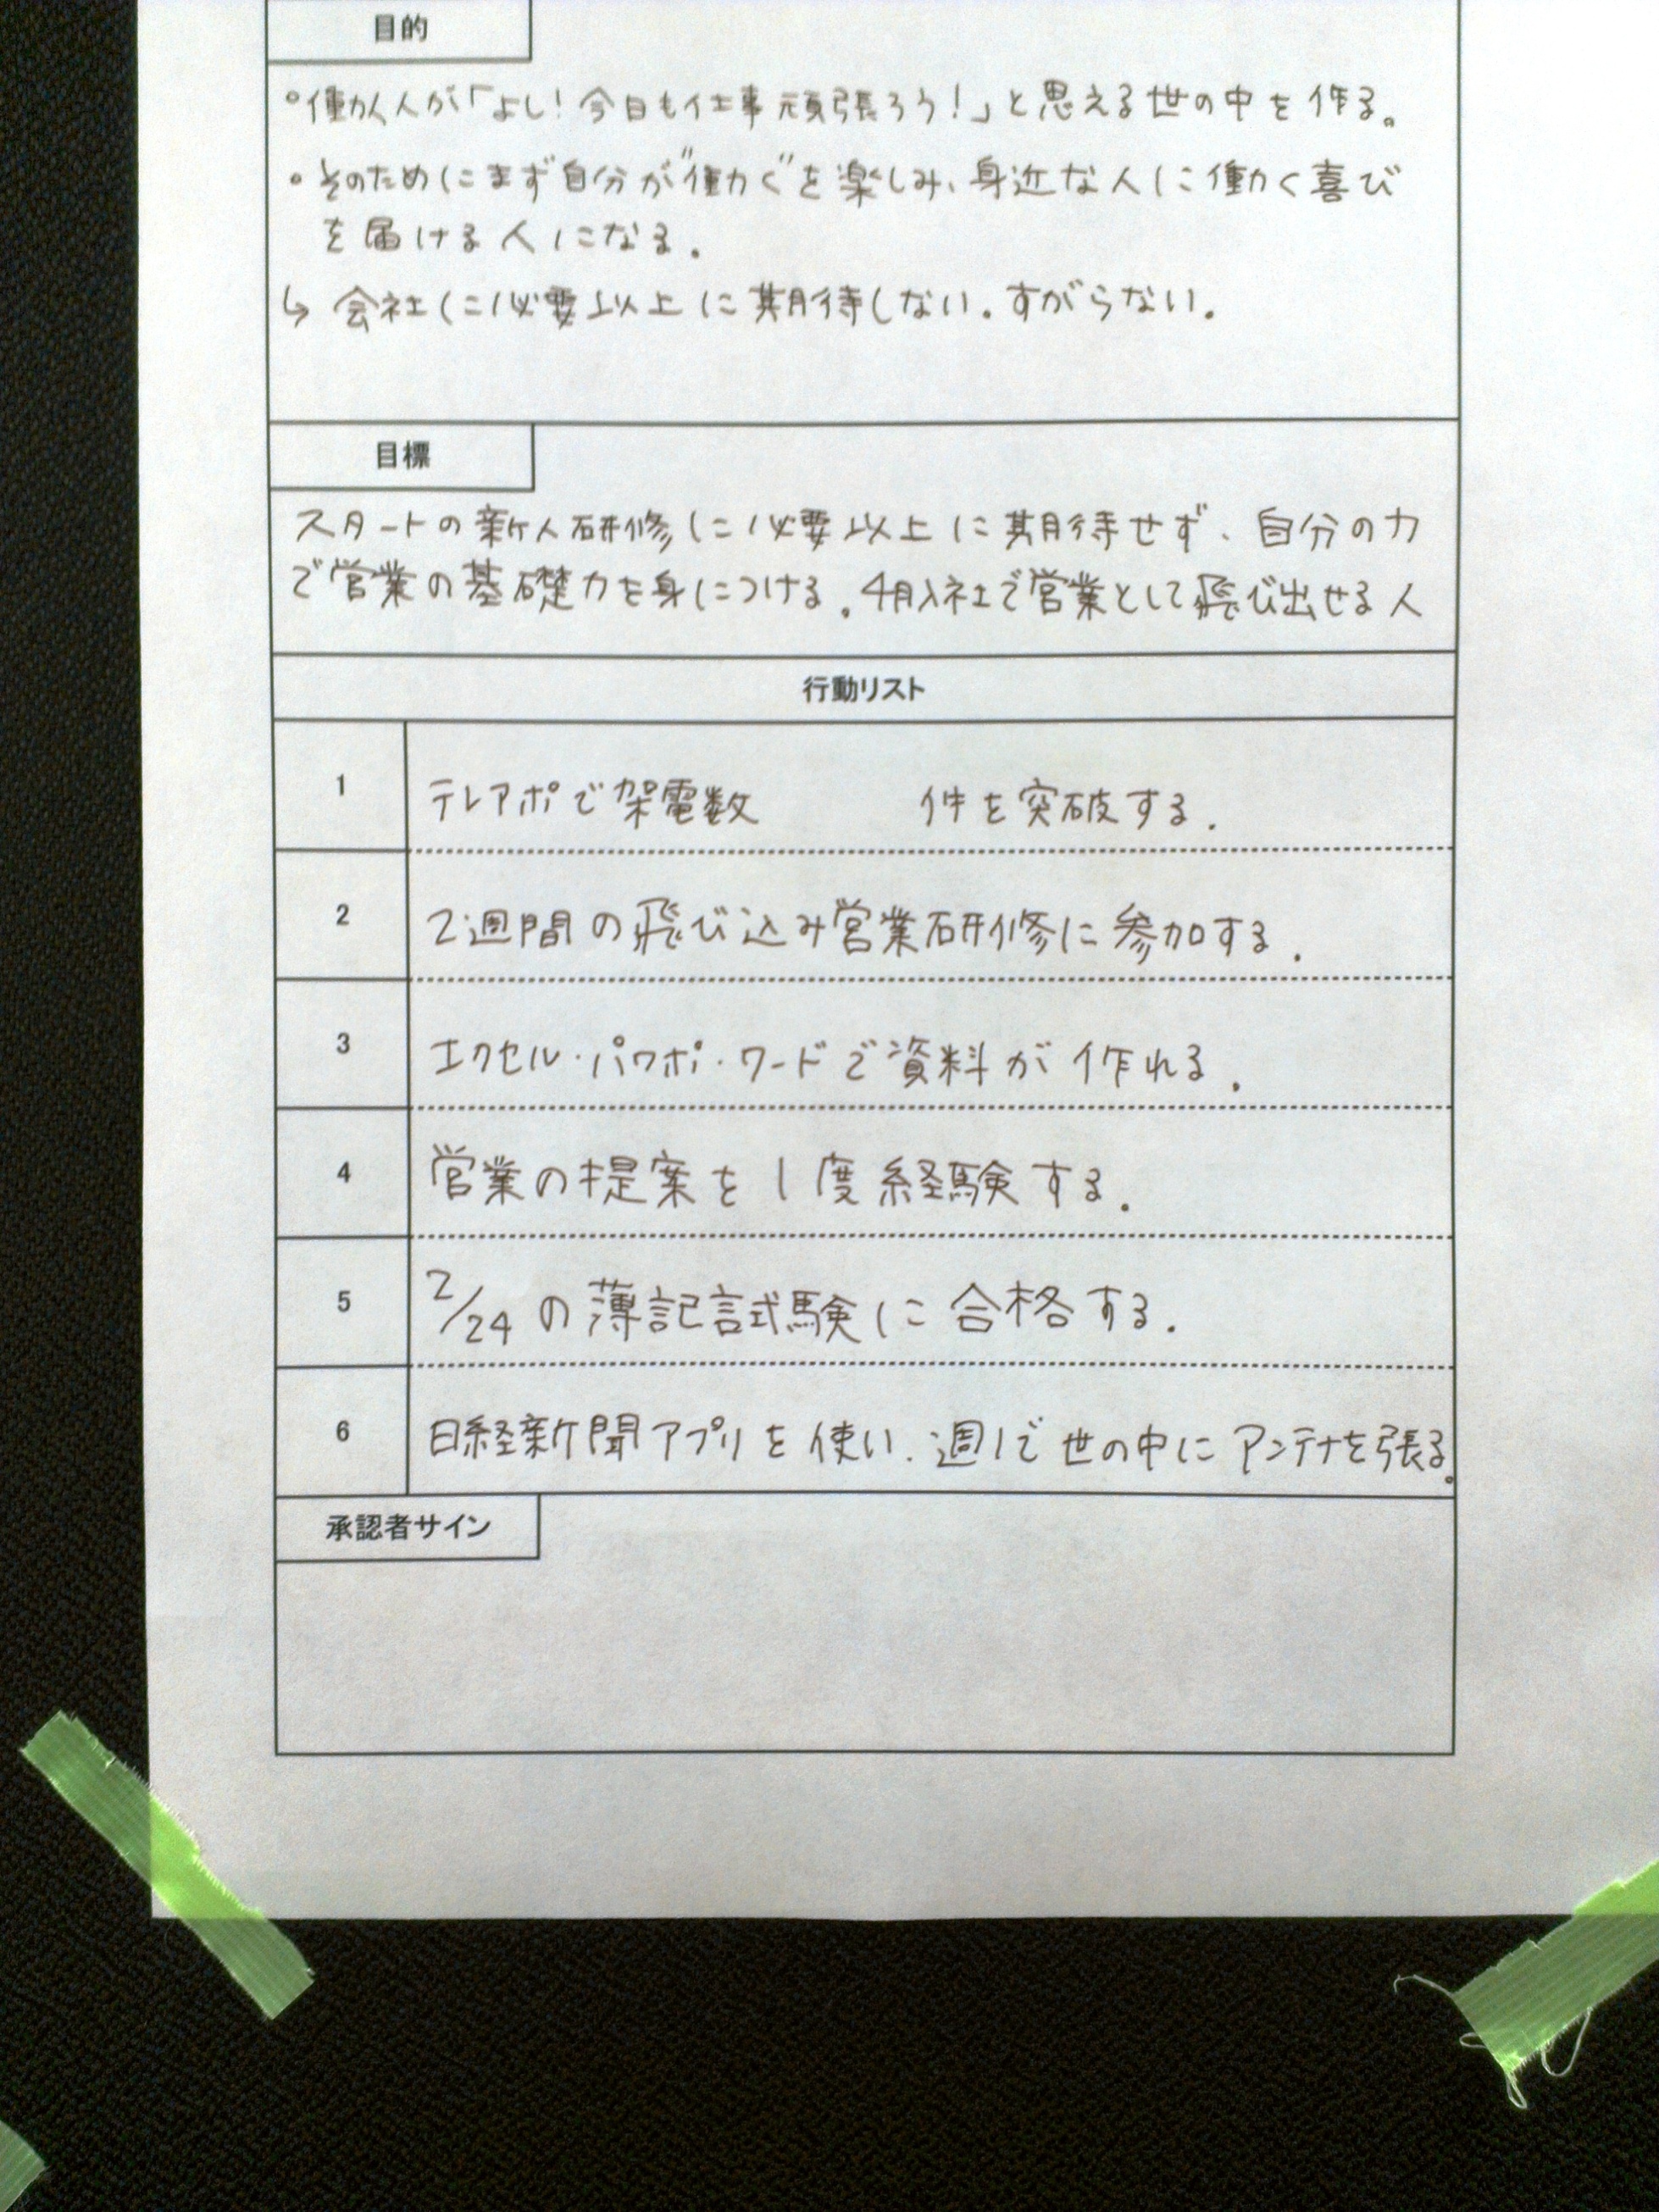 目的
・働く人が「よし！今日も仕事頑張ろう！」と思える世の中を作る。
・そのためにまず自分が"働く"を楽しみ、身近な人に働く喜び
を届ける人になる。
↳ 会社に必要以上に期待しない。すがらない。
目標
スタートの新人研修に必要以上に期待せず、自分の力
で営業の基礎力を身につける。4月入社で営業として飛び出せる人
行動リスト
1 テレアポで架電数 件を突破する。
2 2週間の飛び込み営業研修に参加する。
3 エクセル・パワポ・ワードで資料が作れる。
4 営業の提案を1度経験する。
5 2/24の薄記試験に合格する。
6 日経新聞アプリを使い、週1で世の中にアンテナを張る。
承認者サイン